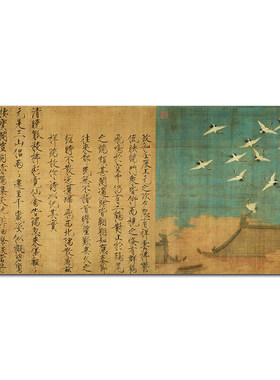 政和壬辰上元之次夕忽有祥雲拂鬱
低映端門衆皆仰而視之倏有群鶴
飛鳴於空中仍有二鶴對止於鴟尾
之端頗甚閒適餘皆翱翔如應奏節
往來都民無不稽首瞻望歎異久之
經時不散迤邐歸飛西北隅散感兹
祥瑞故作詩以紀其實
清曉觚稜拂彩霓仙禽告瑞忽來儀飄飄
元是三山侶兩兩還呈千歲姿似擬碧鸞
棲寶閣豈同赤鴈集天池